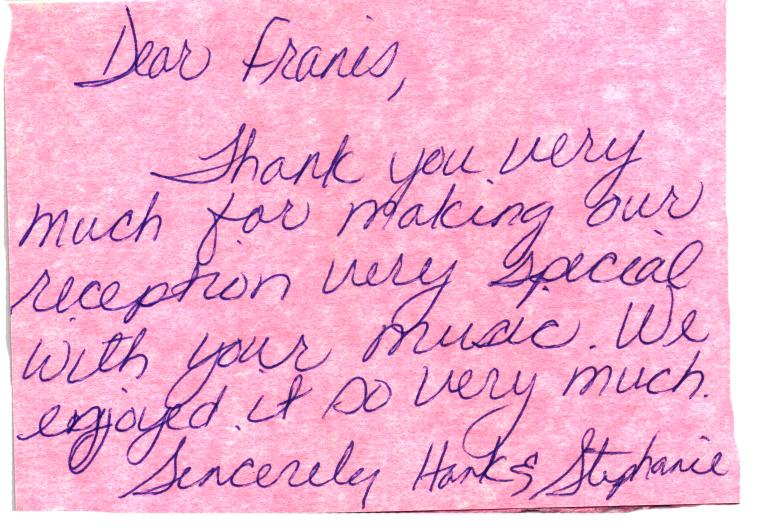 Dear Franis,
Thank you very
much for making our
reception very special
with your music. We
enjoyed it so very much.
Sincerely Hank & Stephanie